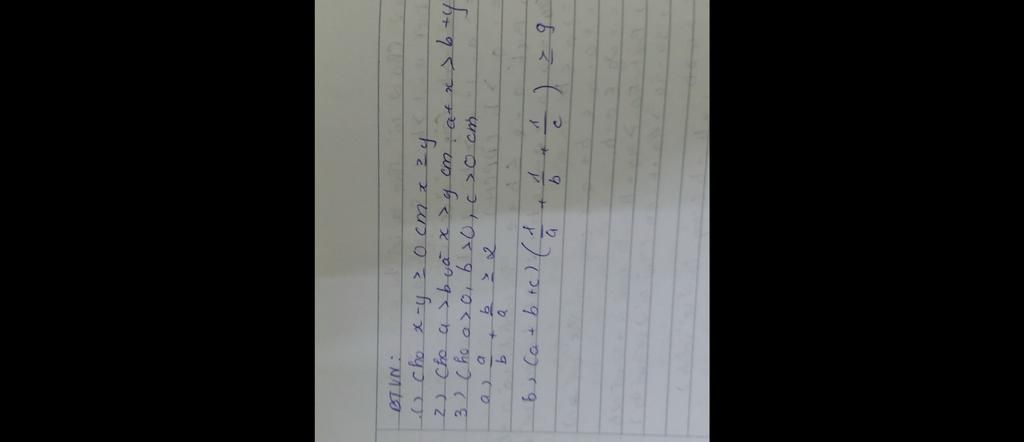 BTVN:
1) Cho x-y ≥ 0 cm x ≥ y
2) Cho a > b và x > y cm: a+x > b+y
3) Cho a>0, b>0, c>0 cm
a) a/b + b/a ≥ 2
b) (a+b+c)(1/a + 1/b + 1/c) ≥ 9